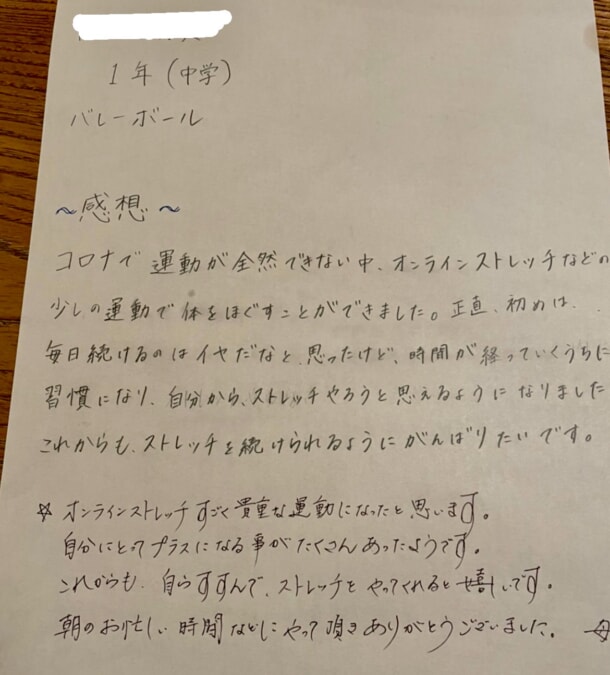 1年(中学)
バレーボール
~感想~
コロナで運動が全然できない中、オンラインストレッチなどの
少しの運動で体をほぐすことができました。正直、初めは、
毎日続けるのはイヤだなと思ったけど、時間が経っていくうちに
習慣になり、自分から、ストレッチやろうと思えるようになりました
これからも、ストレッチを続けられるようにがんばりたいです。
☆オンラインストレッチすごく貴重な運動になったと思います。
自分にとってプラスになる事がたくさんあったようです。
これからも、自らすすんで、ストレッチをやってくれると嬉しいです。
朝のお忙しい時間などにやって頂きありがとうございました。 母